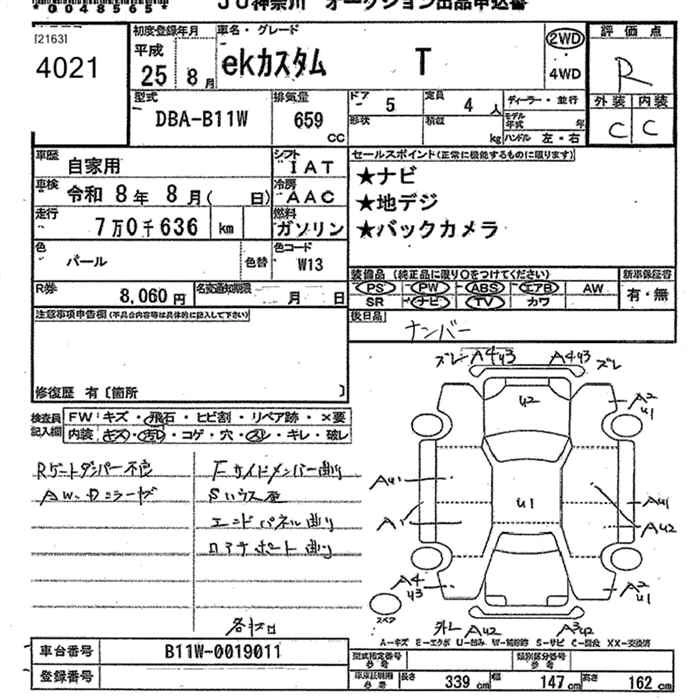 *0048565*
JU神奈川 オークション出品申込書
[2163]
4021
初度登録年月
平成
25 8月
車名・グレード
ekカスタム T
2WD
4WD
評価点
R
型式
DBA-B11W
排気量
659 CC
ドア 5
定員 4 人
形状
積載 kg
ディーラー・並行
モデル年式 年
ハンドル 左・右
外装 内装
C C
車歴 自家用
シフト IAT
車検 令和 8年 8月( 日)
冷房 AAC
走行 7万0千636 km
燃料 ガソリン
色 パール
色替
色コード W13
R券 8,060円
名変通知期限 月 日
セールスポイント(正常に機能するものに限ります)
★ナビ
★地デジ
★バックカメラ
装備品(純正品に限り○をつけてください)
新車保証書
PS PW ABS エアB AW
SR ナビ TV カワ
有・無
後日品
ナンバー
注意事項申告欄(不具合内容等は具体的に記入して下さい)
修復歴 有〔箇所 〕
検査員記入欄
FW キズ・飛石・ヒビ割・リペア跡・×要
内装 キズ・汚レ・コゲ・穴・スレ・キレ・破レ
Rゲートダンパー不良
Fサイドメンバー曲り
エンドパネル曲り
ズレ A4 U3 A4 U3 ズレ
U2
A2 U1
AU1
U1
AU1
A1
AU2
A4 U3
A2 U1
スペア
外レ AU2 A3U2
A-キズ E-エクボ U-凹み W-補修跡 S-サビ C-腐食 XX-交換済
車台番号 B11W-0019011
登録番号
型式指定番号 参考
類別区分番号 参考
車庫証明用 参考
長さ 339 cm
幅 147 cm
高さ 162 cm